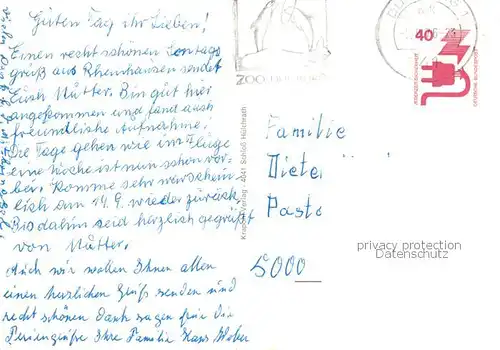 Guten Tag ihr Lieben!
Einen recht schönen Sontags
gruß aus Rheinhausen sendet
Euch Mutter. Bin gut hier
angekommen und fand auch
freundliche Aufnahme.
Die Tage gehen wie im Fluge
eine Woche ist nun schon vor-
bei. Komme sehr warschein-
lich am 14.9. wieder zurück.
Bis dahin seid herzlich gegrüßt
von Mutter.
Auch wir wollen Ihnen allen
einen herzlichen Gruß senden und
recht schönen Dank sagen für die
Feriengrüße Ihre Familie Hans Weber
Krapohl-Verlag · 4041 Schloß Hülchrath
ZOO DUISBURG
40
DEUTSCHE BUNDESPOST
Familie
Dieter
Pasta
5000
privacy protection
Datenschutz